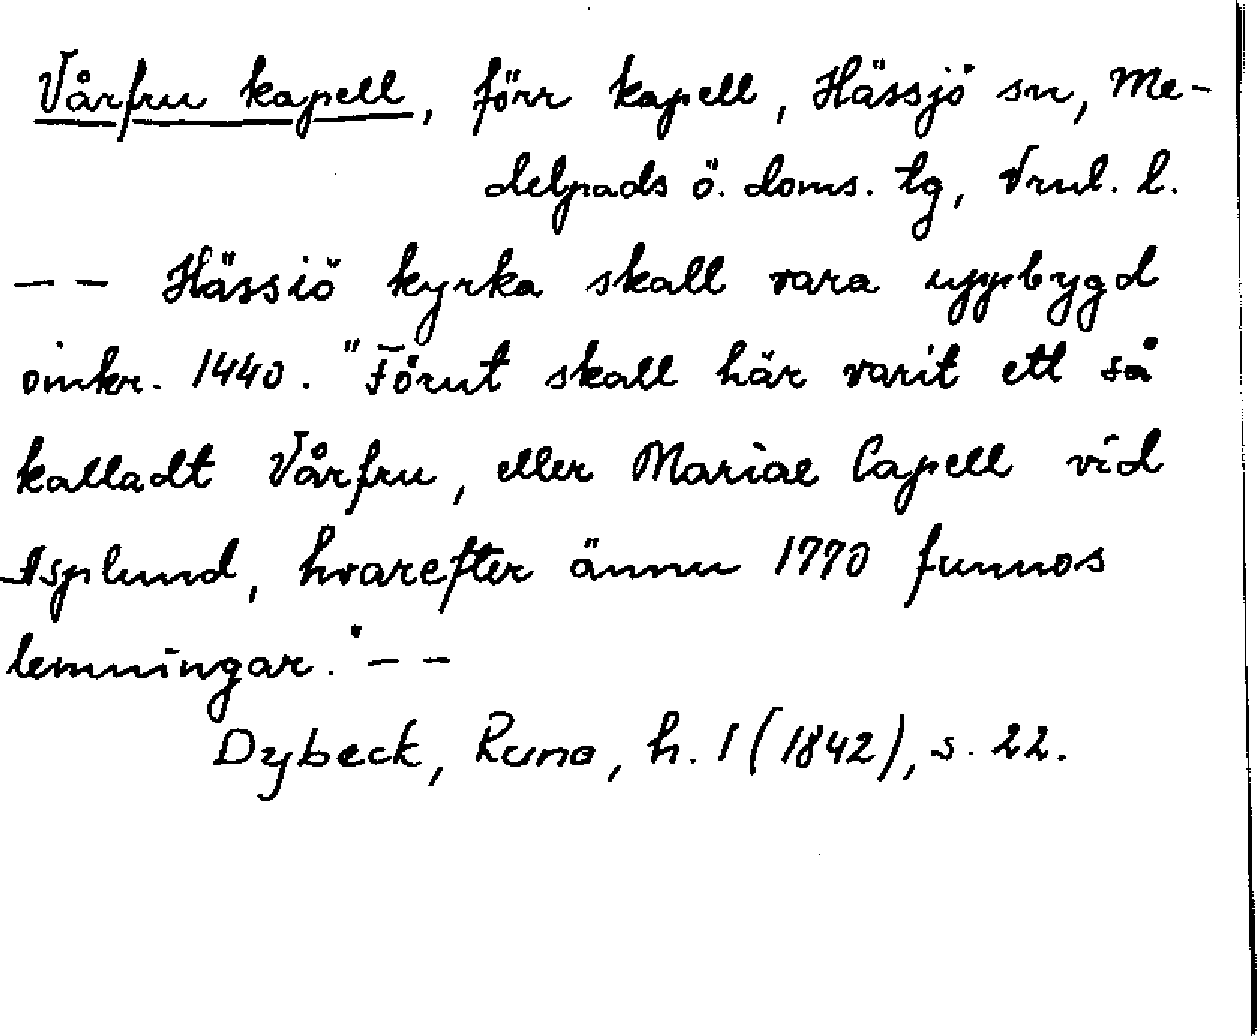 Vårfru kapell, förr kapell, Hässjö sn, Me-
delpads ö. doms. tg, Vnrl. l.
– – Hässiö kyrka skall vara uppbygd
omkr. 1440. "Förut skall här varit ett så
kalladt Vårfru, eller Mariae Capell vid
Asplund, hvarefter ännu 1770 funnos
lemningar." – –
Dybeck, Runa, h. 1 (1842), s. 22.